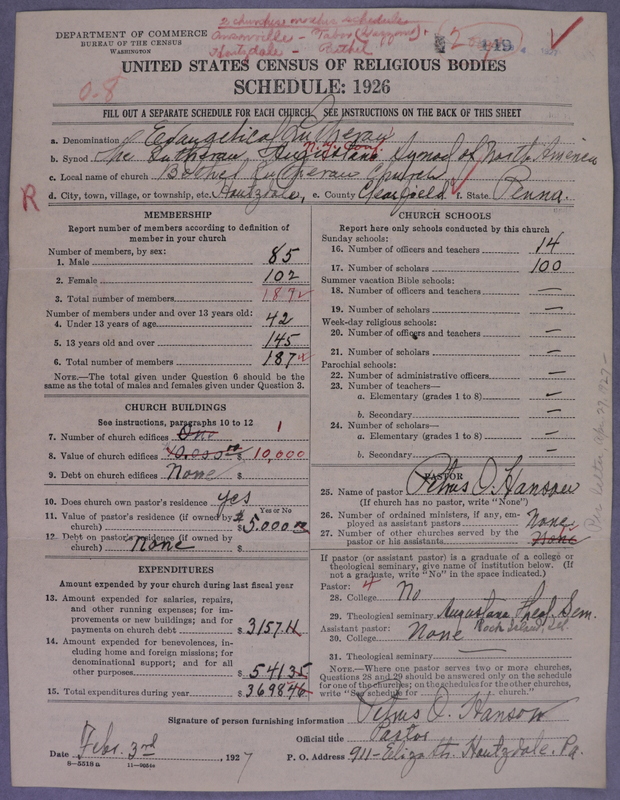 2 churches on this schedule
DEPARTMENT OF COMMERCE
BUREAU OF THE CENSUS
WASHINGTON
Houtzdale - Bethel
UNITED STATES CENSUS OF RELIGIOUS BODIES
SCHEDULE: 1926
0-8
FILL OUT A SEPARATE SCHEDULE FOR EACH CHURCH. SEE INSTRUCTIONS ON THE BACK OF THIS SHEET
a. Denomination Evangelical Lutheran
N.Y. Conf.
b. Synod The Lutheran Augustana Synod of North America
c. Local name of church Bethel Lutheran Church
R
d. City, town, village, or township, etc. Houtzdale, e. County Clearfield f. State Penna.
MEMBERSHIP
Report number of members according to definition of
member in your church
Number of members, by sex:
1. Male 85
2. Female 102
3. Total number of members 187
Number of members under and over 13 years old:
4. Under 13 years of age 42
5. 13 years old and over 145
6. Total number of members 187
NOTE.—The total given under Question 6 should be the
same as the total of males and females given under Question 3.
CHURCH BUILDINGS
See instructions, paragraphs 10 to 12
7. Number of church edifices One 1
8. Value of church edifices 10.000 00 $ 10,000
9. Debt on church edifices None $
10. Does church own pastor's residence yes
Yes or No
11. Value of pastor's residence (if owned by
church) $ 5.000 00
12. Debt on pastor's residence (if owned by
church) None $
EXPENDITURES
Amount expended by your church during last fiscal year
13. Amount expended for salaries, repairs,
and other running expenses; for im-
provements or new buildings; and for
payments on church debt $ 3157.11
14. Amount expended for benevolences, in-
cluding home and foreign missions; for
denominational support; and for all
other purposes $ 541 35
15. Total expenditures during year $ 3698 46
CHURCH SCHOOLS
Report here only schools conducted by this church
Sunday schools:
16. Number of officers and teachers 14
17. Number of scholars 100
Summer vacation Bible schools:
18. Number of officers and teachers —
19. Number of scholars —
Week-day religious schools:
20. Number of officers and teachers —
21. Number of scholars —
Parochial schools:
22. Number of administrative officers —
23. Number of teachers—
a. Elementary (grades 1 to 8) —
b. Secondary —
24. Number of scholars—
a. Elementary (grades 1 to 8) —
b. Secondary —
PASTOR
25. Name of pastor Petrus O. Hanson
(If church has no pastor, write "None")
26. Number of ordained ministers, if any, em-
ployed as assistant pastors None
27. Number of other churches served by the
pastor or his assistants None
If pastor (or assistant pastor) is a graduate of a college or
theological seminary, give name of institution below. (If
not a graduate, write "No" in the space indicated.)
Pastor:
28. College No
29. Theological seminary Augustana Theol. Sem.
Rock Island, Ill.
Assistant pastor:
30. College None
31. Theological seminary —
NOTE.—Where one pastor serves two or more churches,
Questions 28 and 29 should be answered only on the schedule
for one of the churches; on the schedules for the other churches,
write "See schedule for church."
Per letter, Apr. 27, 1927-
Signature of person furnishing information Petrus O. Hanson
Official title Pastor
Date Febr. 3rd, 1927 P. O. Address 911-Elizabeth. Houtzdale. Pa.
8-5518 a 11-9051